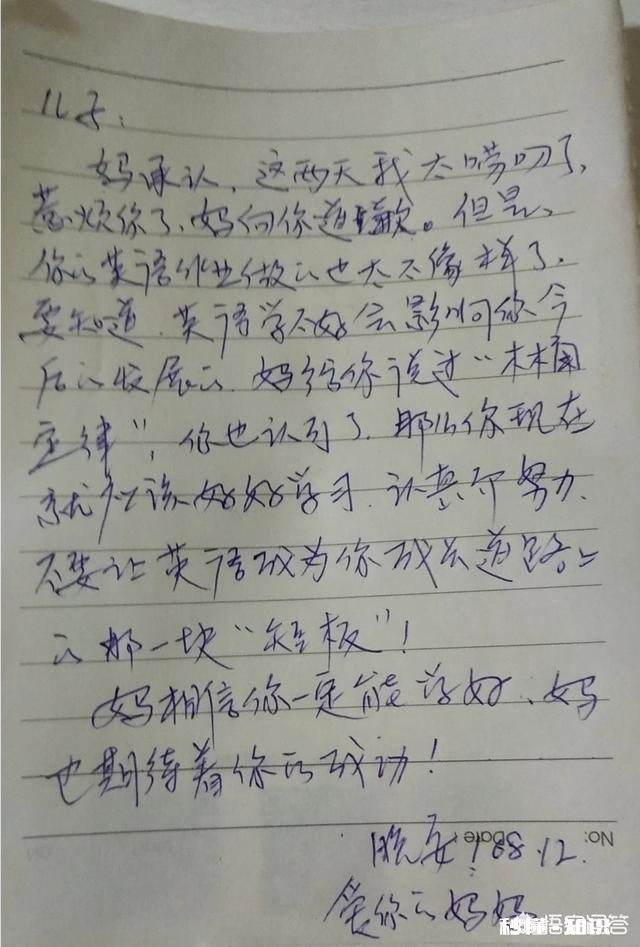 儿子：
妈承认，这两天我太唠叨了，
惹烦你了，妈向你道歉。但是，
你的英语作业做的也太不像样了，
要知道，英语学不好会影响你今
后的发展的，妈给你说过“木桶
定律”，你也认可了，那么你现在
就应该好好学习，认真而努力，
不要让英语成为你成长道路上
的那一块“短板”！
妈相信你一定能学好，妈
也期待着你的成功！
晚安！08.12.
爱你的妈妈
No:
Date
悟空问答